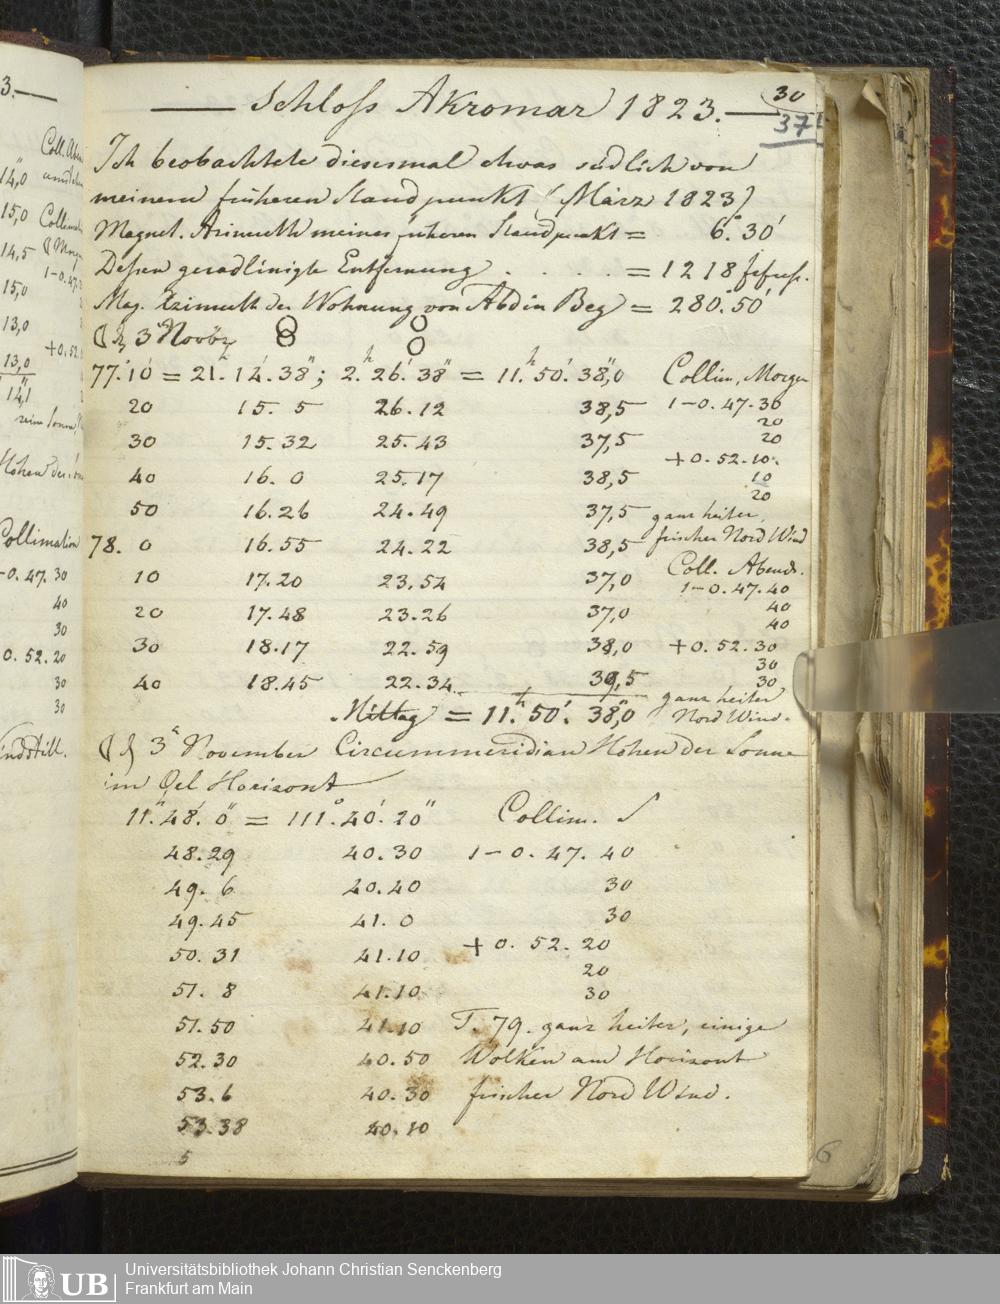 Schloss Akromar 1823.
30
37
Ich beobachtete diesesmal etwas südlich von
meinem früheren Standpunkt (März 1823)
Magnet. Azimuth meines früheren Standpunkt = 6.° 30'
Dessen geradlinigte Entfernung . . . . . = 1218
Mag. Azimuth der Wohnung von Abdin Beg = 280.° 50'
3 Novbr
77.° 10' = 21.h 14.' 38"; 2.h 26.' 38" = 11.h 50.' 38,"0 Collim. Morgen
20 15. 5 26.12 38,5 1-0.47.30
20
30 15.32 25.43 37,5 20
+0.52.10.
40 16. 0 25.17 38,5 10
20
50 16.26 24.49 37,5 ganz heiter,
78. 0 16.55 24.22 38,5 frischer Nord Wind
Coll. Abends.
10 17.20 23.54 37,0 1-0.47.40
40
20 17.48 23.26 37,0 40
30 18.17 22.59 38,0 +0.52.30
30
40 18.45 22.34 39,5 30
ganz heiter
Mittag = 11.h 50.' 38,"0 Nord Wind.
3 November Circummeridian Höhen der Sonne
im Oel Horizont
11.h 48.' 0" = 111.° 40.' 20" Collim.
48.29 40.30 1-0.47.40
49. 6 40.40 30
49.45 41. 0 30
50.31 41.10 +0.52.20
20
51. 8 41.10 30
51.50 41.10 T. 79. ganz heiter, einige
52.30 40.50 Wolken am Horizont
53.6 40.30 frischer Nord Wind.
53.38 40.10
5
6
3.
14,0
15,0
14,5
15,0
13,0
+0.52.
13,0
14,1
Collimation
-0.47.30
40
30
0.52.20
30
30
UB
Universitätsbibliothek Johann Christian Senckenberg
Frankfurt am Main